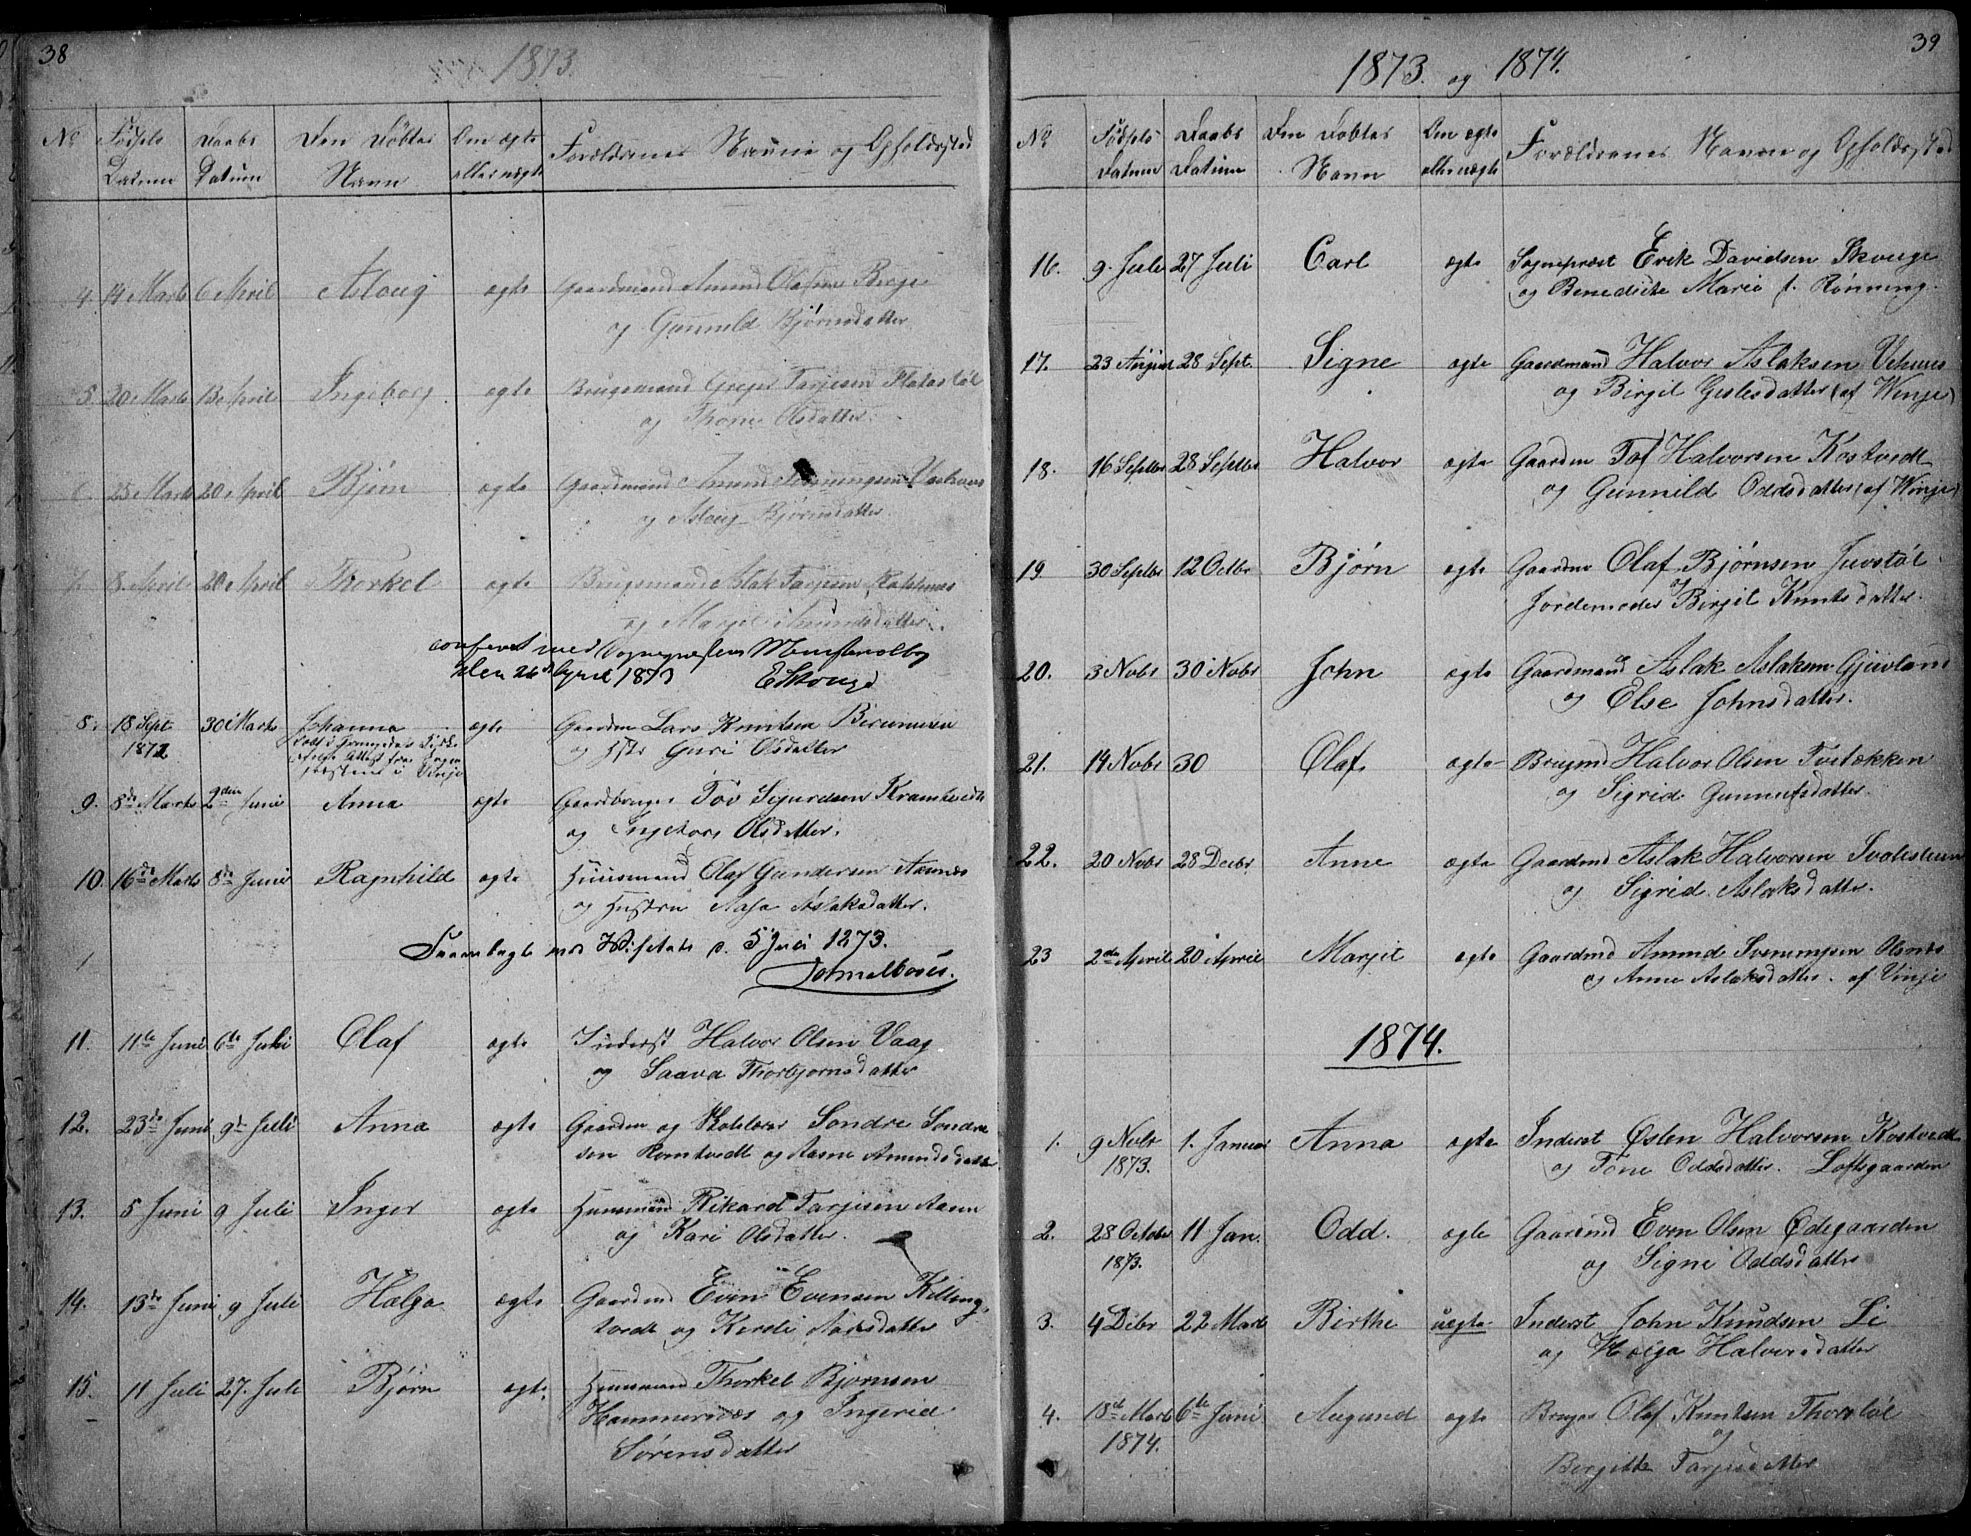 38
1873.
No Fødsels Datum Daabs Datum Den Døbtes Navn Om ægte eller uægte Forældrenes Navne og Opholdssted
4. 14 Marts 6 April Asloug ægte Gaardmand Amund Olafsen Berge
og Gunnild Bjørnsdatter
5 20 Marts 13 April Ingeborg ægte Brugsmand Greger Tarjesen Flatastøl
og Thone Olsdatter.
6. 25 Marts 20 April Bjørn ægte Gaardmand Amund
og Asloug Bjørnsdatter
7. 8. April 20 April Thorkel ægte Brugsmand Aslak Tarjesen
og Margit Amundsdatter.
confereret med Sognepræstens Ministerialbog
den 26de April 1873 ESkouge
8. 18 Sept 1872 30 Marts Johanna ægte Gaardm Lars Knutsen
og Hstr Guri Olsdatter
9. 8de Marts 2den Juni Anna ægte Gaardbruger Tov Sigurdsen Kramtvedt
og Ingeborg Olsdatter.
10. 16de Marts 8de Juni Ragnhild ægte Huusmand Olaf Gundersen Aasnes
og Hustru Aase Aslaksdatter.
Fremlagte ved Visitats d. 5 Juli 1873.
11. 11te Juni 6te Juli Olaf ægte Inderst Halvor Olsen Vaag
og Saava Thorbjørnsdatter
12. 23de Juni 9de Juli Anna ægte Gaardm og Skolelærer Sondre Sondre
sen Romtvedt og Aasne Amundsdatter
13. 5 Juni 9 Juli Inger ægte Huusmand Rikard Tarjesen Aasen
og Kari Olsdatter.
14. 13de Juni 9 Juli Hælga ægte Gaardmd Even Evensen Killing-
tvedt og Kirsti Aasesdatter
15. 11 Juli 27. Juli Bjørn ægte Huusmand Thorkel Bjørnsen
Hammernæs og Ingerid
Sørensdatter
39
1873. og 1874.
No Fødsels Datum Daabs Datum Den Døbtes Navn Om ægte eller uægte Forældrenes Navne og Opholdssted
16. 9. Juli 27 Juli Carl ægte Sognepræst Erik Davidsen Skouge
og Benedicte Marie f. Rønning.
17. 23 August 28 Sept. Signe ægte Gaardmand Halvor Aslaksen Vehuus
og Birgit Gislesdatter (af Winje)
18. 16 Septbr 28 Septbr Halvor ægte Gaardm Tof Halvorsen Kostvedt
og Gunnild Oddsdatter (af Winje)
19 30 Septbr 12 Octbr Bjørn ægte Gaardm Olaf Bjørnsen Juvstøl
Jordemoder Birgit Knutsdatter.
20. 3 Nobr 30 Nobr John ægte Gaardmand Aslak Aslaksen Gjuvland
og Else Johnsdatter.
21. 14 Nobr 30 Olaf ægte Brugmd Halvor Olsen Tveitækken
og Sigrid Gunnufsdatter.
22. 20 Nobr 28 Decbr. Anne ægte Gaardmd Aslak Halvorsen
og Sigrid Aslaksdatter.
23 2de April 20 April Margit ægte Gaardmd Amund Svenumgsen Olsnes
og Anne Aslaksdatter. af Vinje
1874.
1. 9 Nobr 1873. 1. Januar Anna ægte Inderst Østen Halvorsen Kostvedt
og Tone Oddsdatter. Loftsgaarden
2. 28 October 1873. 11 Jan. Odd. ægte Gaardmd Even Olsen Ødegaarden
og Signe Oddsdatter
3. 4 Dcbr 22 Marts Birthe uægte Inderst John Knudsen Li
og Hælga Halvorsdatter
4. 18de Marts 1874. 6te Juni Augund ægte Bruger Olaf Knutsen Thorstøl
og
Birgitte Tarjesdatter